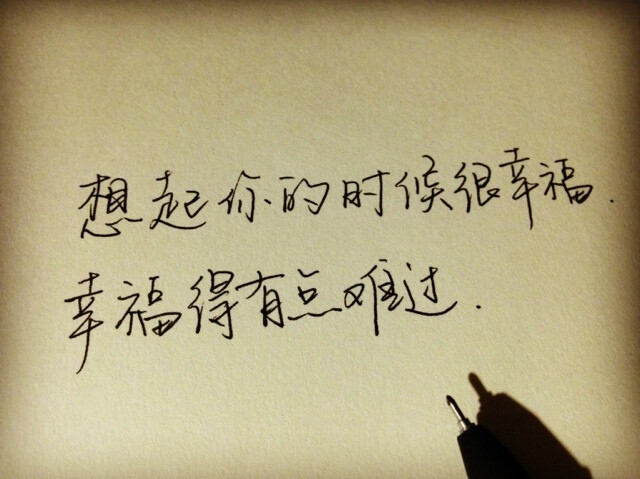 想起你的时候很幸福.
幸福得有点难过.